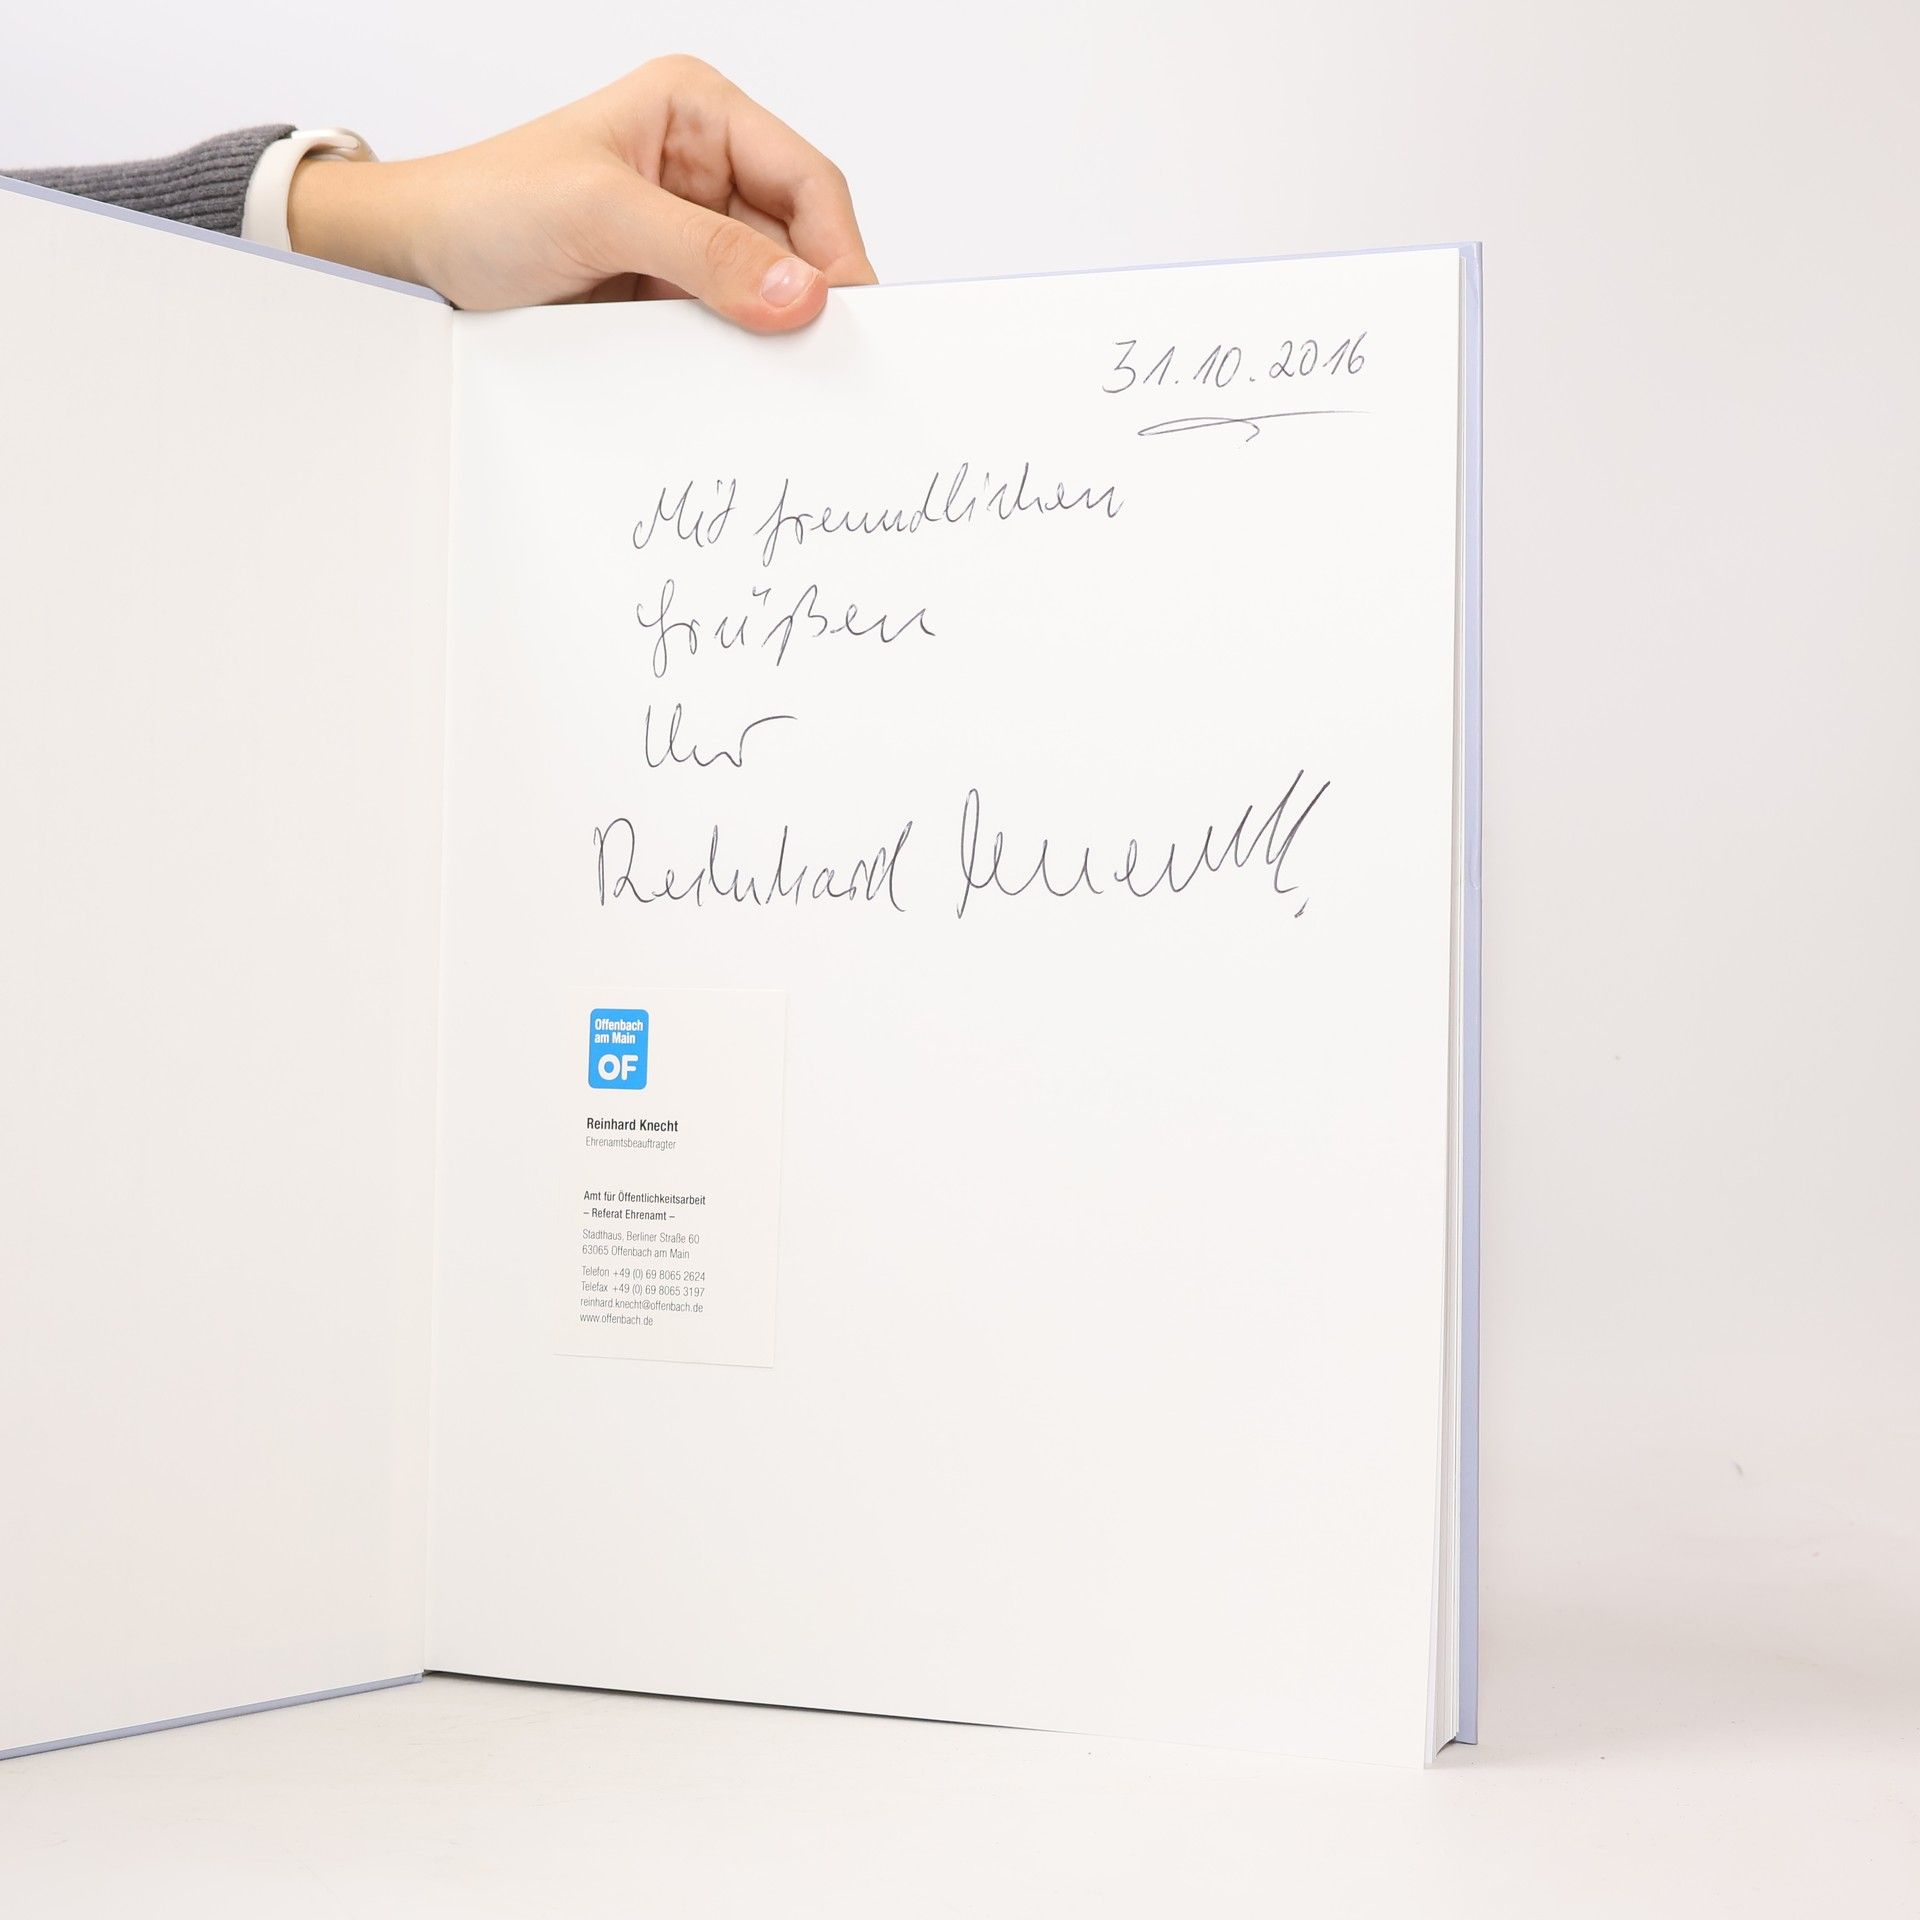 31.10.2016
Mit freundlichen
Grüßen
Ihr
Reinhard Knecht
Offenbach
am Main
OF
Reinhard Knecht
Ehrenamtsbeauftragter
Amt für Öffentlichkeitsarbeit
– Referat Ehrenamt –
Stadthaus, Berliner Straße 60
63065 Offenbach am Main
Telefon +49 (0) 69 8065 2624
Telefax +49 (0) 69 8065 3197
reinhard.knecht@offenbach.de
www.offenbach.de